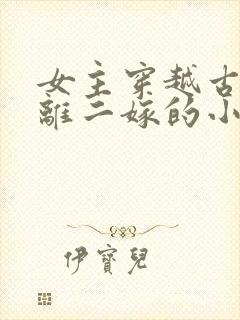 女主穿越古
離二嫁的小
伊寶兒